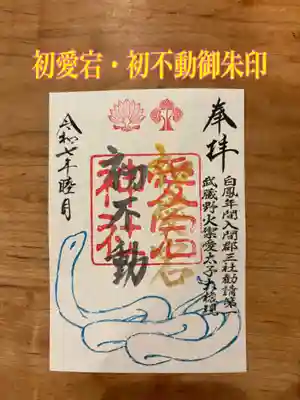 初愛宕・初不動御朱印
奉拝
白鳳年間入間郡三社勧請第一
武蔵野火禦愛太子大権現
愛宕
初不動
令和七年睦月